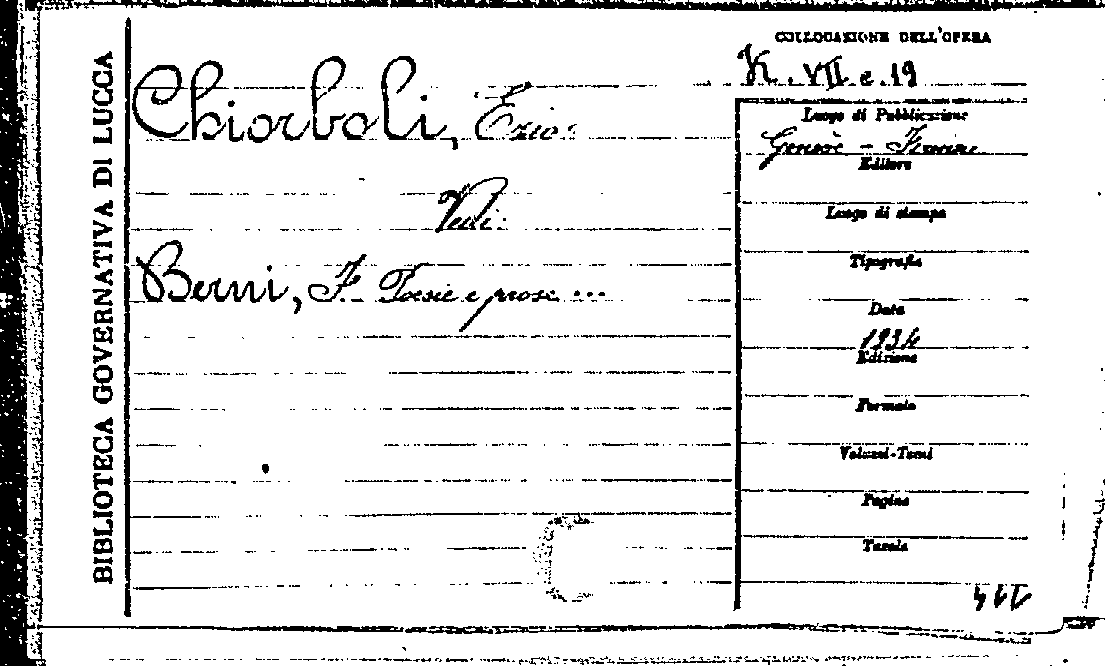 BIBLIOTECA GOVERNATIVA DI LUCCA
COLLOCAZIONE DELL'OPERA
K. VII e. 19
Chiorboli, Ezio:
Vedi:
Berni, F. Poesie e prose ...
Luogo di Pubblicazione
Genève - Firenze
Editore
Luogo di stampa
Tipografia
Data
1934
Edizione
Formato
Volumi-Tomi
Pagine
Tavole